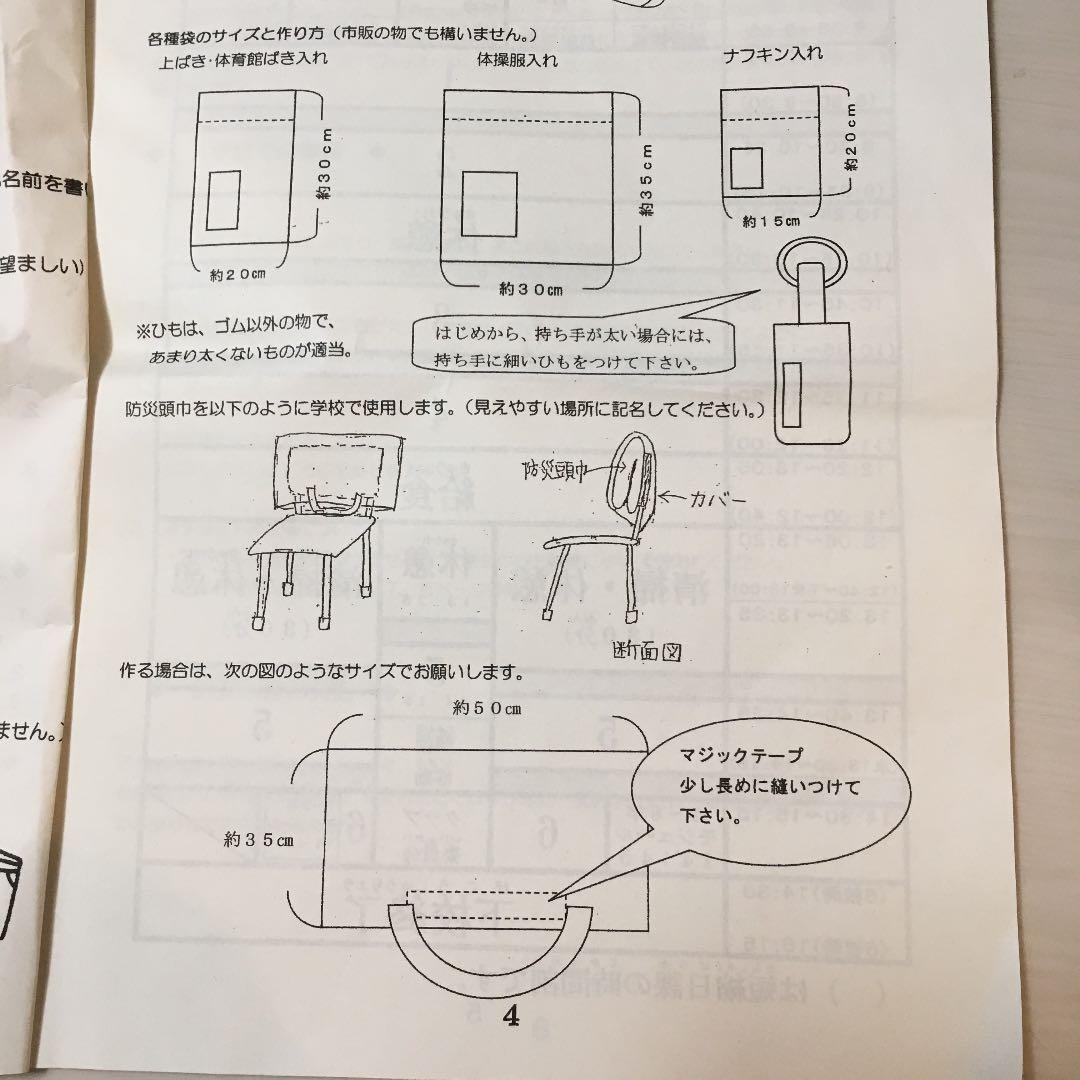 各種袋のサイズと作り方（市販の物でも構いません。）
上ばき・体育館ばき入れ
体操服入れ
ナフキン入れ
約３０cm
約３５cm
約２０cm
約２０cm
約３０cm
約１５cm
※ひもは、ゴム以外の物で、
あまり太くないものが適当。
はじめから、持ち手が太い場合には、
持ち手に細いひもをつけて下さい。
防災頭巾を以下のように学校で使用します。（見えやすい場所に記名してください。）
防災頭巾
カバー
断面図
作る場合は、次の図のようなサイズでお願いします。
約５０cm
約３５cm
マジックテープ
少し長めに縫いつけて
下さい。
4
名前を書
望ましい）
ません。）